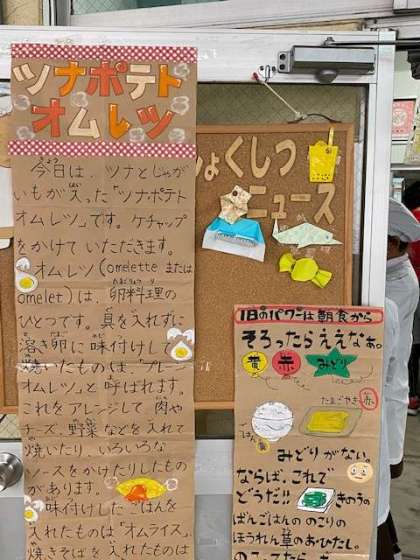 ツナポテト
オムレツ
今日は、ツナとじゃが
いもが入った「ツナポテト
オムレツ」です。ケチャップ
をかけていただきます。
オムレツ(omelette または
omelet)は、卵料理の
ひとつです。具を入れずに
溶き卵に味付けし
焼いたものは「プレーン
オムレツ」と呼ばれます。
これをアレンジして肉や
チーズ、野菜などを入れて
焼いたり、いろいろな
ソースをかけたりしたもの
があります。
味付けしたごはんを
入れたものは「オムライス」
焼きそばを入れたものは
しょくしつ
ニュース
1日のパワーは朝食から
そろったらええなぁ。
黄
赤
みどり
ごはん
黄
たまごやき
赤
みどりがない。
ならば、これで
どうだ!!
きのうの
ばんごはんののこりの
ほうれん草のおひたし。